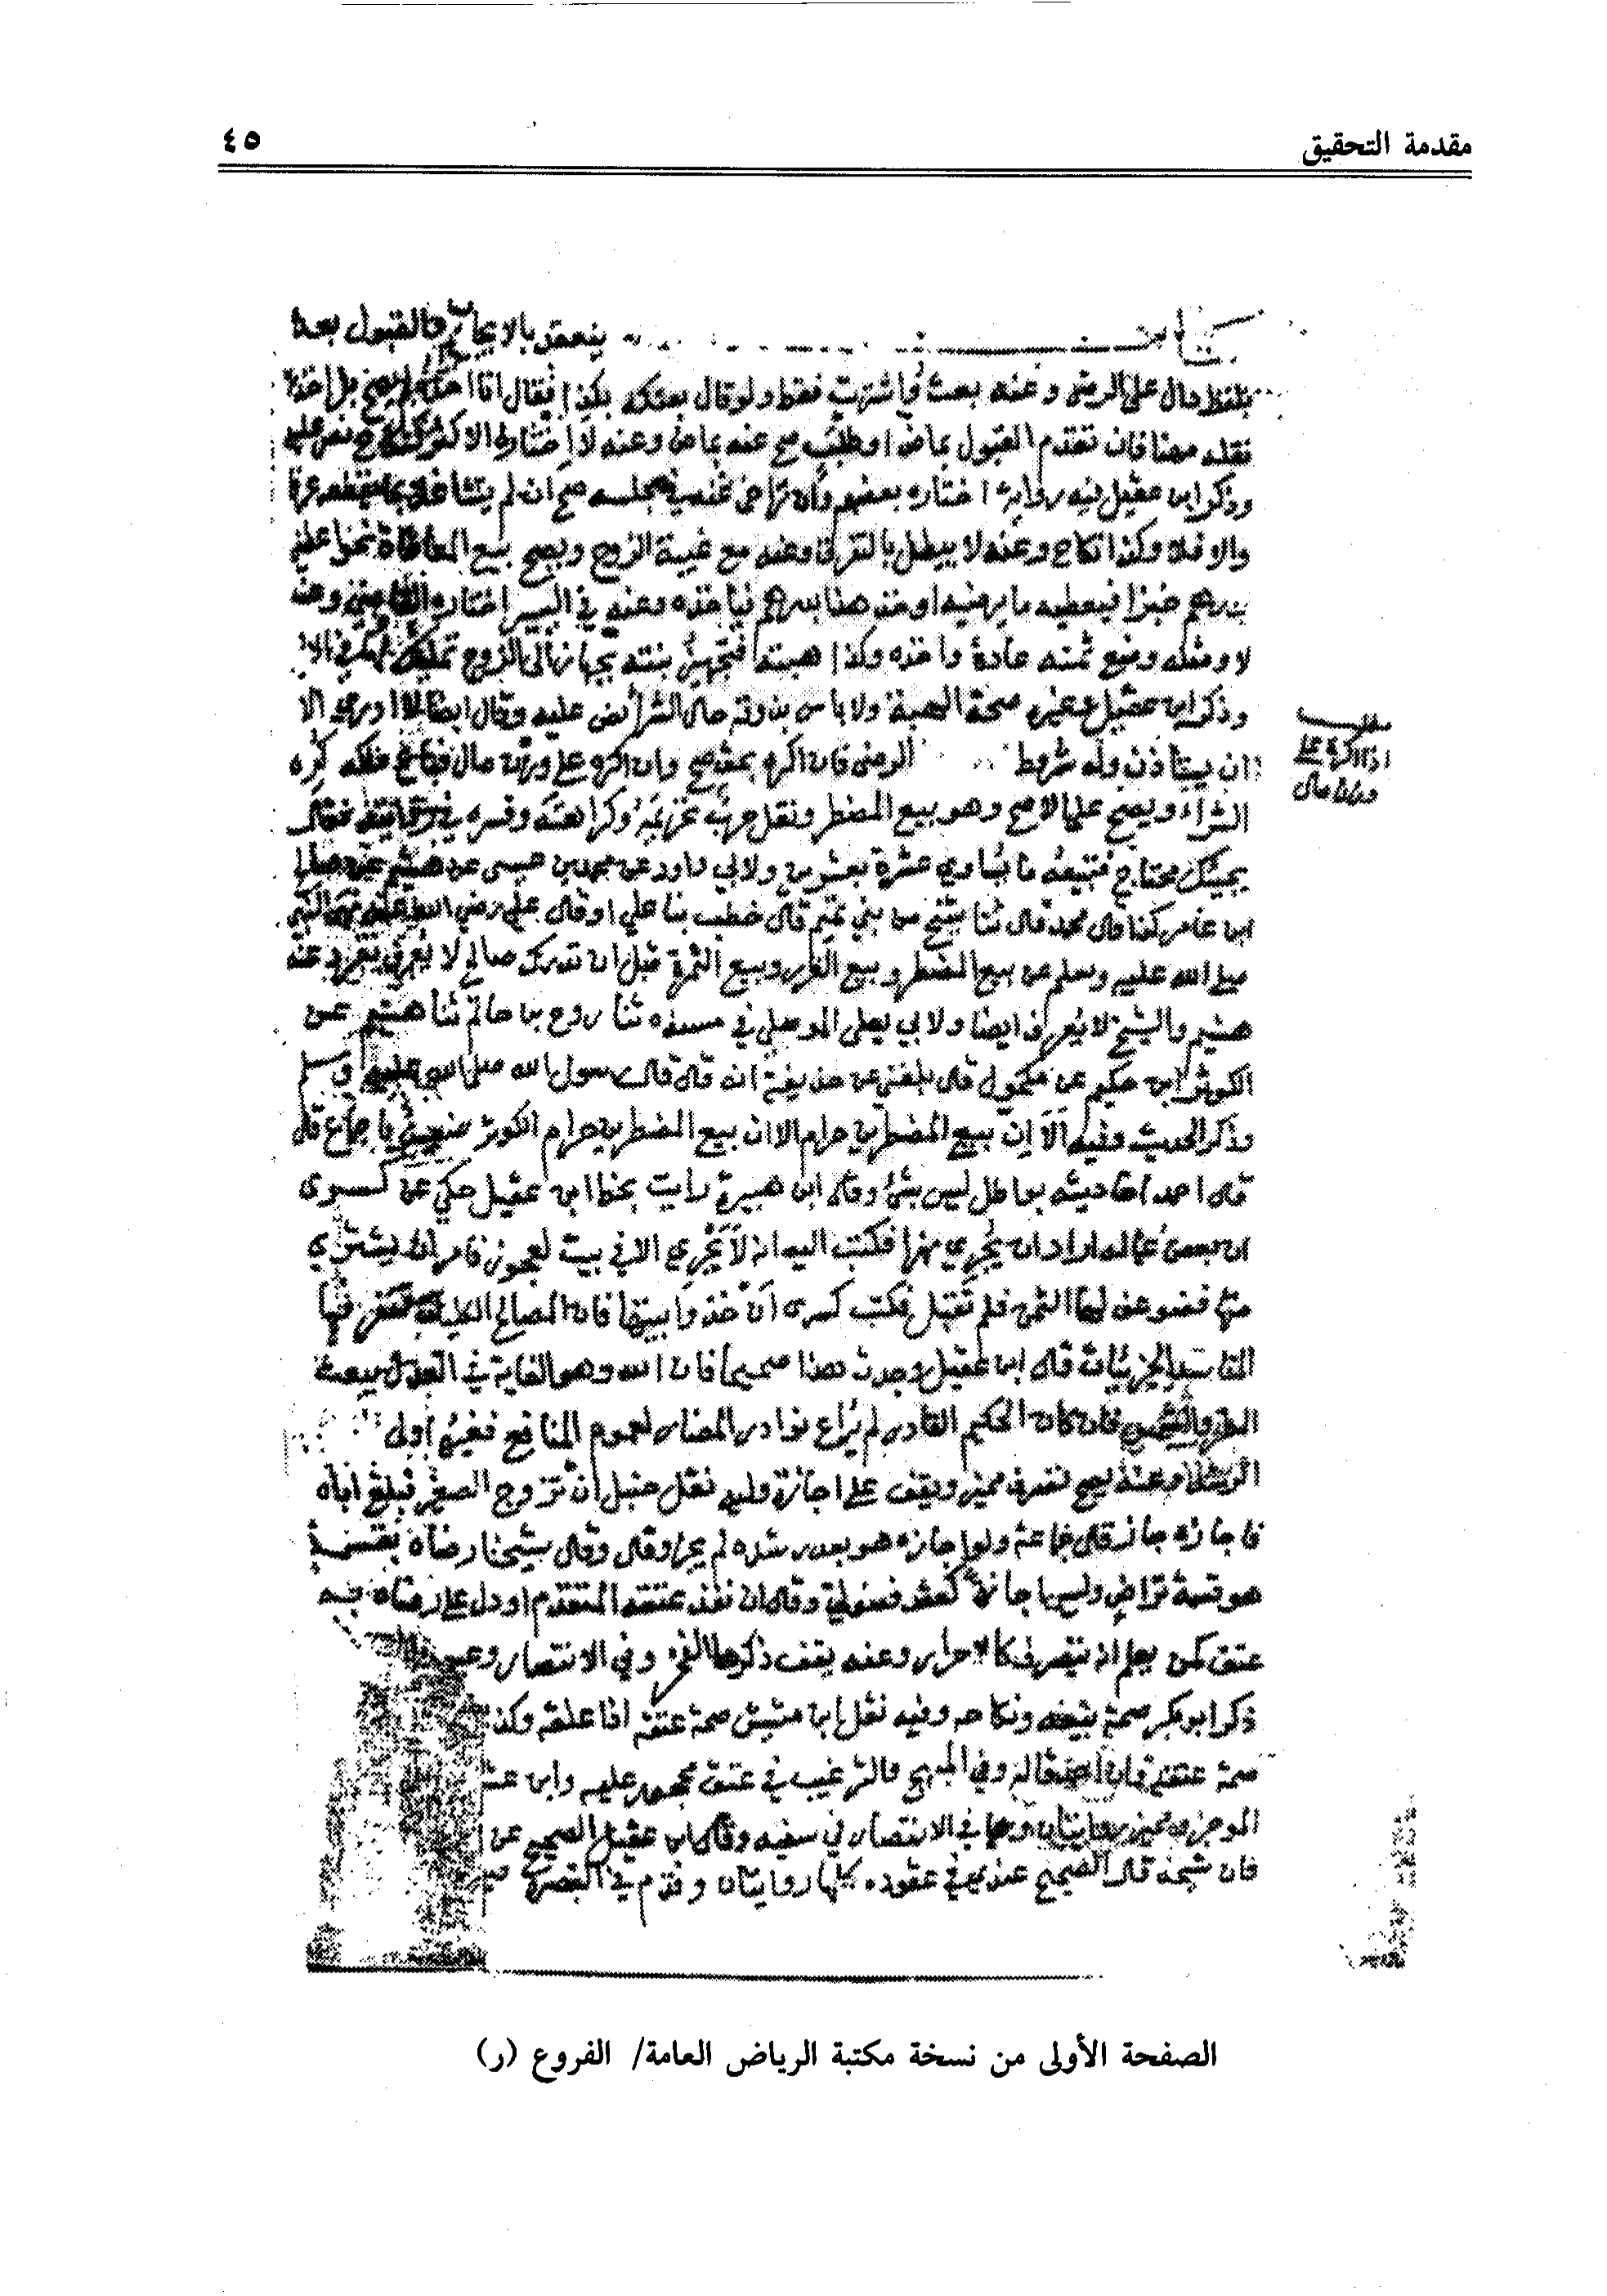 مقدمة التحقيق
٤٥
كتاب ينعقد بالايجاب والقبول بعده
بلفظ دال على الرضى وعنه بعت واشتريت فقط ولو قال بعتكه بكذا فقال انا اخذه
نقله مهنا فان تقدم القبول بماض او طلب صح عنه بماض وعنه لا اختاره الاكثر
وذكر ابن عقيل فيه رواية اختاره بعضهم وان تراخى عنه في مجلسه صح ان لم يتشاغلا بما يقطعه عرفا
والا فلا وكذا نكاح وعنه لا يبطل بالتفرق وعنه مع غيبة الزوج ويصح بيع المعاطاة نحو اعطني
بدرهم خبزا فيعطيه ما يرضيه او خذ هذا بدرهم فياخذه وعنه في اليسير اختاره القاضي وعنه
لا ومثله وضع ثمنه عادة واخذه وكذا هبة فتجهيز بنته بجهاز الى الزوج تمليك
وذكر ابن عقيل وغيره صحة الهبة ولا باس بذوقه حال الشرا نص عليه وقال ايضا لا ادري الا
ان يستاذن وله شروط الرضى فان اكره بحق صح وان اكره على وزن مال فباع ملكه كره
الشراء ويصح على الاصح وهو بيع المضطر ونقل حرب تحريمه وكراهته وفسره في رواية فقال
يجيئك محتاج فتبيعه ما يساوي عشرة بعشرين ولابي داود عن محمد بن عيسى عن هشيم عن صالح
ابن عامر كذا قال محمد قال ثنا شيخ من بني تميم قال خطبنا علي او قال علي رضي الله عنه نهى النبي
صلى الله عليه وسلم عن بيع المضطر وبيع الغرر وبيع الثمرة قبل ان تدرك صالح لا يعرف تفرد عنه
هشيم والشيخ لا يعرف ايضا ولابي يعلى الموصلي في مسنده ثنا روح بن حاتم ثنا هشيم عن
الكوثر ابن حكيم عن مكحول قال بلغني عن حذيفة انه قال قال رسول الله صلى الله عليه وسلم
وذكر الحديث وفيه الا ان بيع المضطرين حرام الا ان بيع المضطرين حرام الكوثر ضعيف باجماع قال
قال احمد احاديثه بواطل ليس بشئ وقال ابن هبيرة رايت بخط ابن عقيل حكي عن كسرى
ان بعض عماله اراد ان يجري نهرا فكتب اليه انه لا يجري الا في بيت لعجوز فامر ان يشترى
منها فضوعف لها الثمن فلم تقبل فكتب كسرى ان خذوا بيتها فان المصالح الكليات تغتفر فيها
المفاسد الجزئيات قال ابن عقيل وجدت هذا صحيحا فان الله وهو الغاية في العدل يبعث
المطر والشمس فان كان الحكيم القادر لم يراع نوادر المضار لعموم المنافع فغيره اولى
الرشد وعنه يصح تصرف مميز ويقف على اجازة وليه نقل حنبل ان تزوج الصغير فبلغ اباه
فاجازه جاز قال جماعة ولو اجازه هو بعد رشده لم يجز وقال وقال شيخنا رضاه بقسمة
هو قسمة تراض وليس اجازة لعقد فضولي وقال ان نفذ عتقه المتقدم او دل على رضاه به
عتق كمن يعلم انه يتصرف كالاحرار وعنه يقف ذكرها الفخر وفي الانتصار
ذكر ابو بكر صحة بيعه ونكاحه وفيه نقل ابن مشيش صحة عتقه اذا عقله وكذا
صحة عتقه وفي المبهج والترغيب في عتق محجور عليه وابن عقيل
الموجز ومميز روايتان وهما في الانتصار في سفيه وقال ابن عقيل الصحيح عن
فان شيخه قال الصحيح عندي في عقوده كلها روايتان وقدم في التبصرة
مطلب
اذا اكره على
وزن مال
الصفحة الأولى من نسخة مكتبة الرياض العامة/ الفروع (ر)